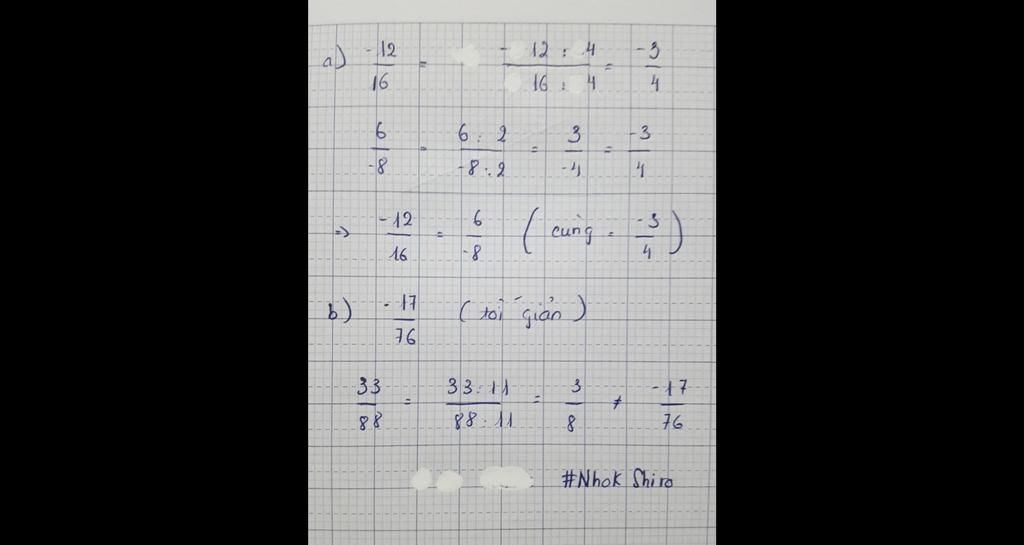 a) -12/16 = -12 : 4/16 : 4 = -3/4
6/-8 = 6 : 2/-8 : 2 = 3/-4 = -3/4
=> -12/16 = 6/-8 (cùng = -3/4)
b) -17/76 (tối giản)
33/88 = 33 : 11/88 : 11 = 3/8 ≠ -17/76
#Nhok Shiro